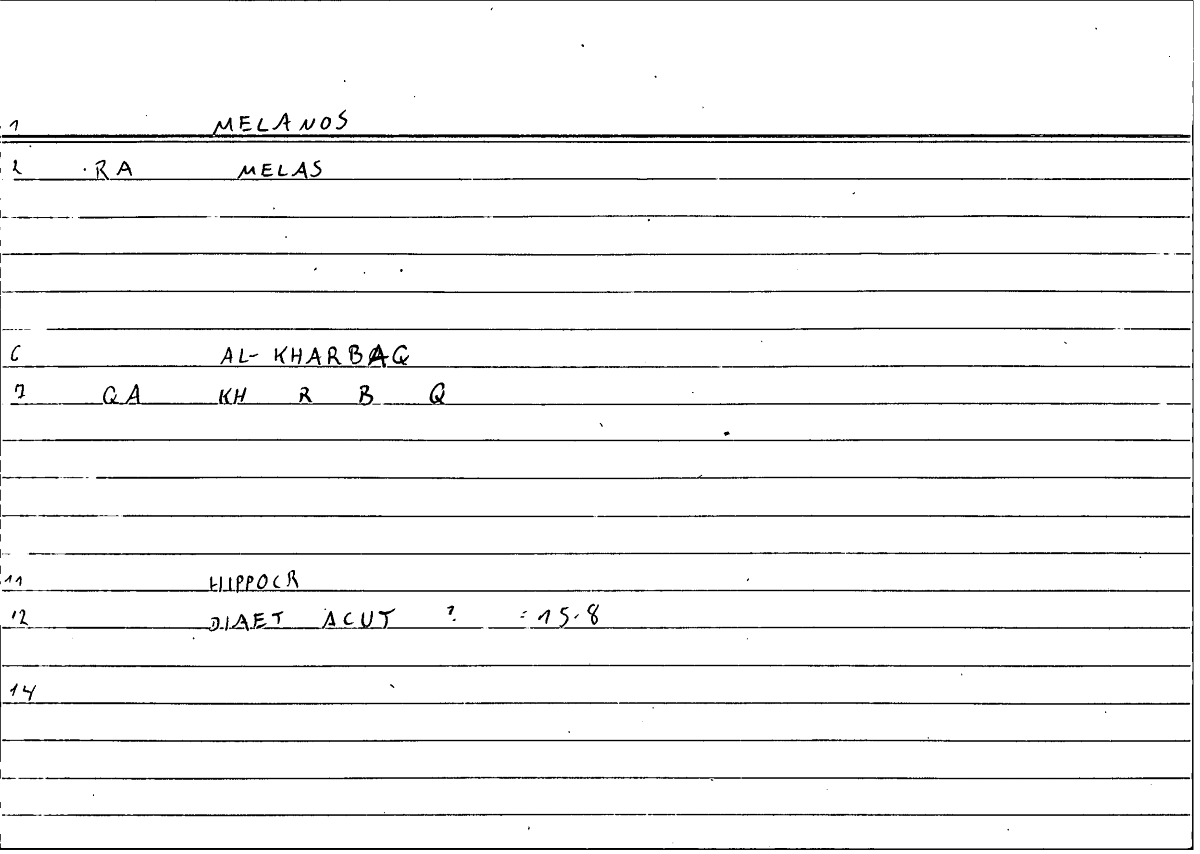 1 MELANOS
2 RA MELAS
6 AL-KHARBAQ
7 QA KH R B Q
11 HIPPOCR
12 DIAET ACUT ? =15.8
14